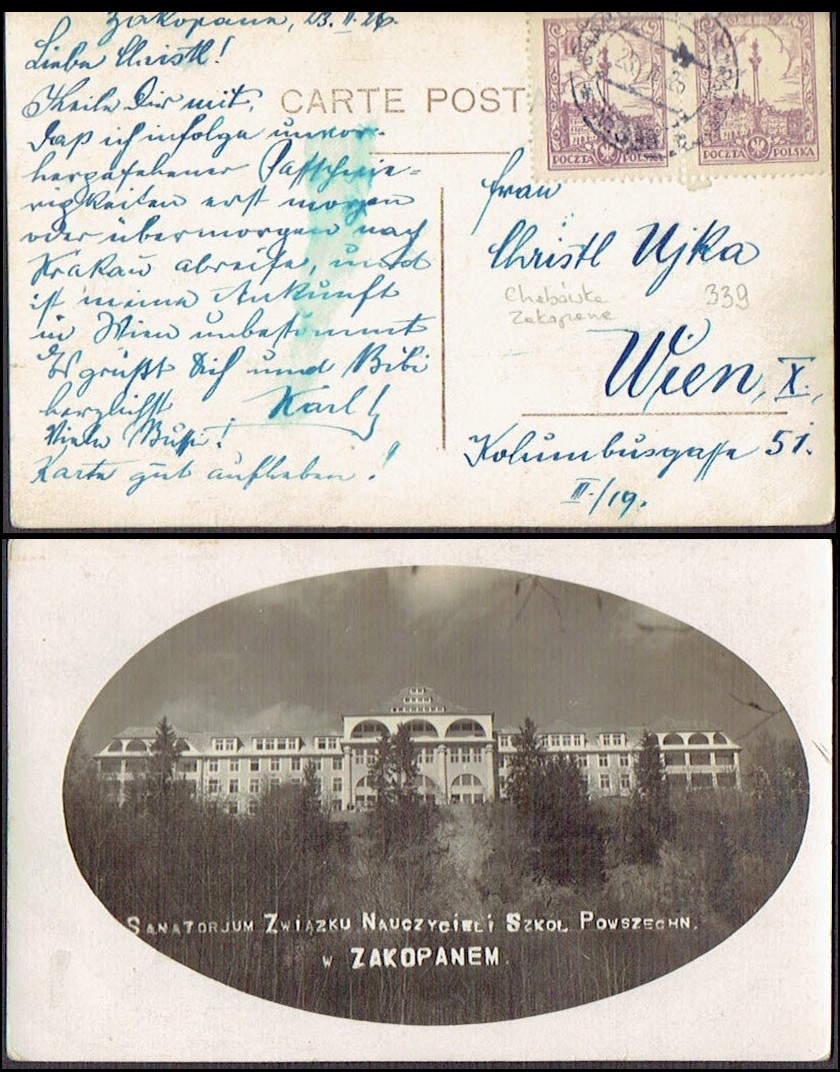 Zakopane, 23. II. 26.
Liebe Christl!
Theile Dir mit,
daß ich infolge unvor-
hergesehener Paßschwie-
rigkeiten erst morgen
oder übermorgen nach
Krakau abreise, und
ist meine Ankunft
in Wien unbestimmt
Es grüßt Dich und Bibi
herzlichst Karl
Viele Bussi!
Karte gut aufheben!
CARTE POSTA
10
POCZTA POLSKA
POCZTA POLSKA
Frau
Christl Ujka
Chabówka
Zakopane
339
Wien, X.,
Kolumbusgasse 51.
II./19.
SANATORJUM ZWIĄZKU NAUCZYCIELI SZKOL POWSZECHN.
W ZAKOPANEM.